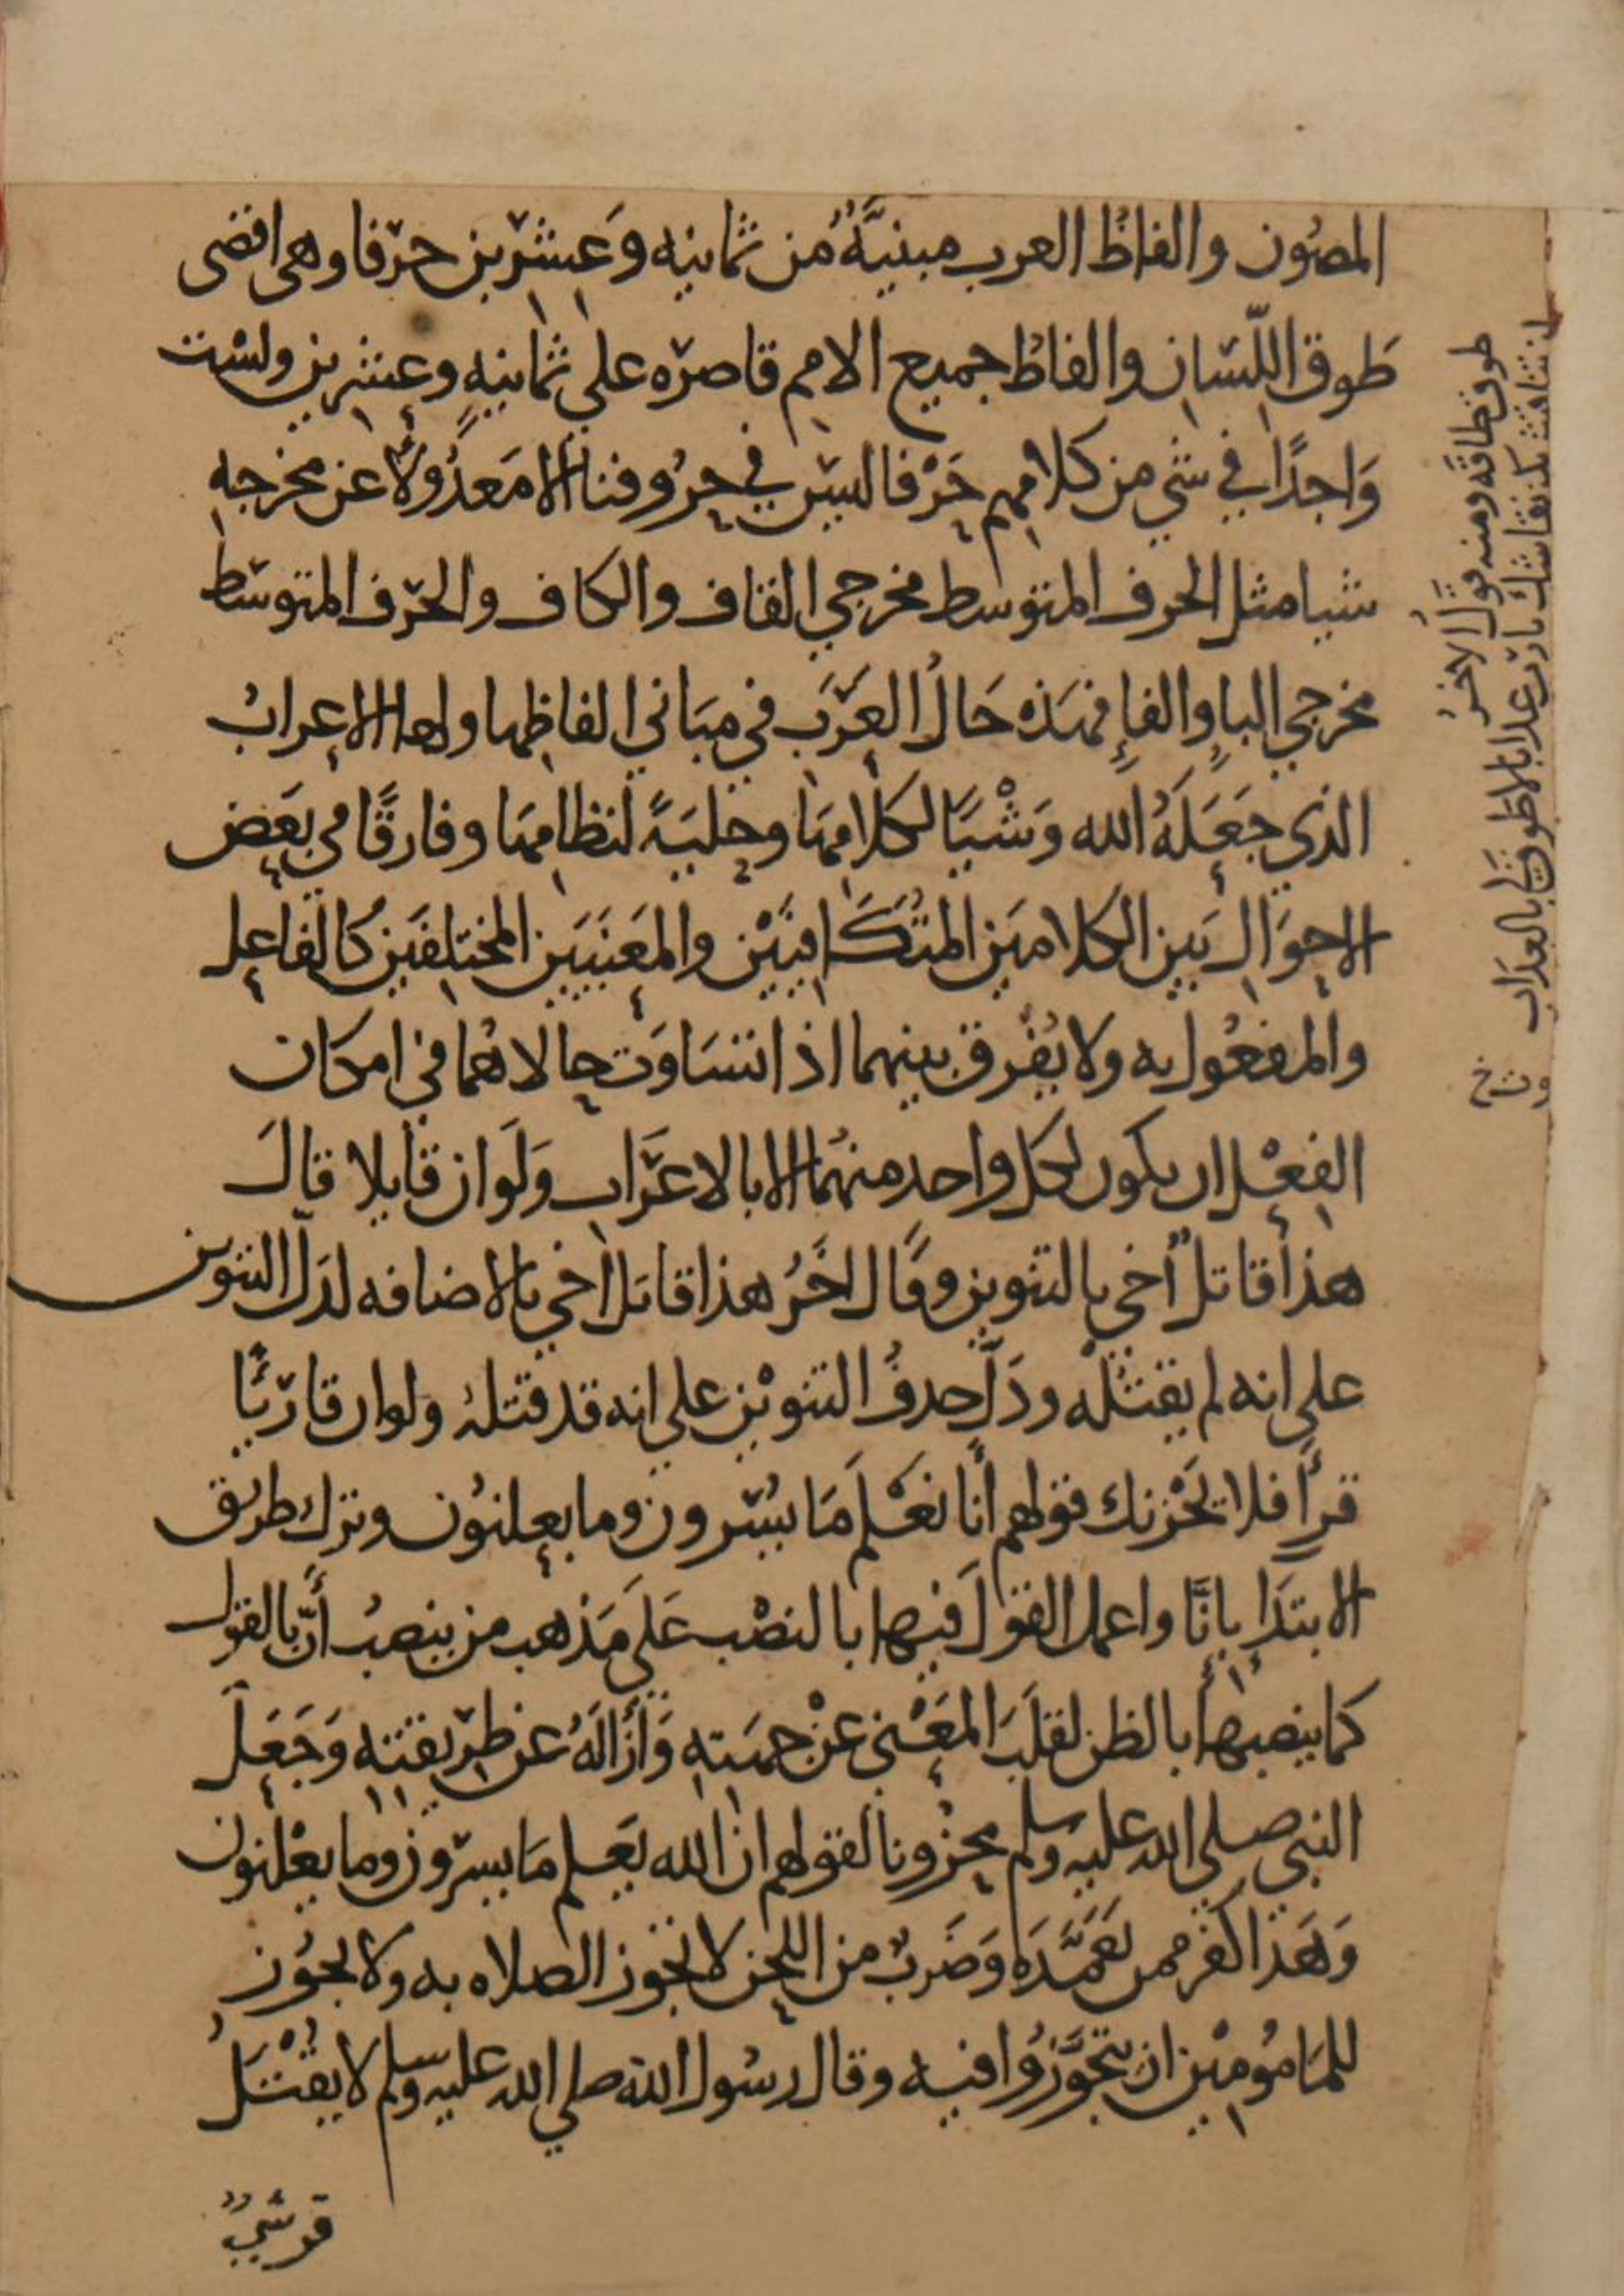 المصُون والفاظُ العرب مبنيَّةٌ من ثمانيه وَعِشْرِين حرْفا وهى اقصى
طَوق اللّسَانِ والفاظُ جميع الامم قاصرَه على ثمانيهٍ وعِشرين ولسْت
وَاجدًا في شي من كلامِهم حَرْفا ليسَ في حرُوفنا الا مَعدُولًا عن مخرجهِ
شيا مثل الحرف المتوسط مخرجي القاف والكاف والحرْف المتوسّط
مخرجي الباءِ والفاءِ فهَذه حَالُ العَرَبِ في مبَاني الفاظِها ولها الاِعرابُ
الذي جَعَلَهُ الله وَشْيًا لكلامِهَا وحِليَةً لنظامِهَا وفارقًا في بَعض
الاحوَالِ بَين الكلامَين المتَكَافِيَيْن والمَعنَيَين المختلِفَين كَالفاعِل
والمفعُول به ولا يُفْرق بينهما اذا تسَاوَت حالاهُما في امكان
الفِعْل ان يكون لكل واحد منهُمَا الا بالاِعرَاب وَلَوَ ان قايلا قالَ
هذا قاتلٌ اخي بالتنوين وقَال اخَرُ هذا قاتل اخي بالاضافه لدَلّ التنوين
على انه لم يقتُلْه ودَلَّ حذفُ التنويْن على انه قد قتلهُ ولو ان قارئًا
قرأَ فلا يَحْزنك قولهم أَنا نعْلَم مَا يُسِرون وما يعلنُون وترك طريق
الابتدَاءِ بإِنَّا واعمل القَولَ فيها بالنصْب عَلى مَذهب من ينصبُ أَنّ بالقول
كما ينصبها بالظن لقلَبَ المَعْنى عَنْ جهَتِهِ وَأَزَالَهُ عن طرِيقتِهِ وَجَعَلَ
النبي صلى الله عليه وسلم محزُونا لقولهم ان الله يَعلم مَا يسِرون وما يعْلنون
وَهَذا كفر ممن تعَمَّدَه وَضَربٌ من اللحن لا تجُوز الصلاه به ولا يجُوز
للمَامُومِيْن ان يتجَوَّزُوا فيه وقال رسُول الله صلى الله عليه وسلم لا يقْتَلُ
قرشيٌّ
طوق طاقه ومنه قولُ الاخرُ